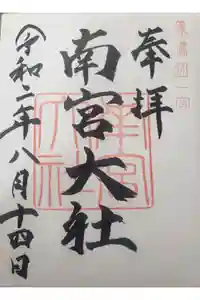 奉拝
南宮大社
令和二年八月十四日